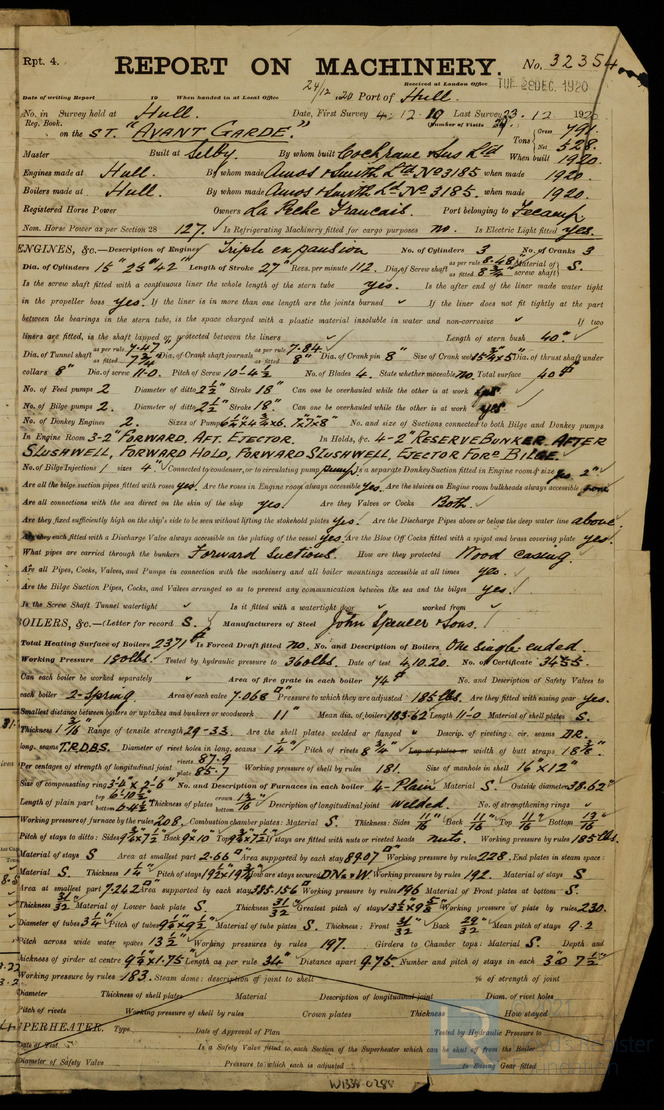 Rpt. 4. REPORT ON MACHINERY. No. 32354
Received at London Office TUE 28 DEC. 1920
Date of writing Report 19 When handed in at Local Office 24/12 1920 Port of Hull.
No. in Reg. Book. Survey held at Hull. Date, First Survey 4.12.19 Last Survey 23.12.1920
(Number of Visits
on the S.T. "AVANT GARDE." Tons Gross 791. Net 328.
Master Built at Selby By whom built Cochrane & Sons Ltd When built 1920.
Engines made at Hull. By whom made Amos & Smith Ld No 3185 when made 1920.
Boilers made at Hull. By whom made Amos & Smith Ld No. 3185. when made 1920.
Registered Horse Power Owners La Peche Francais. Port belonging to Fecamp
Nom. Horse Power as per Section 28 127. Is Refrigerating Machinery fitted for cargo purposes no. Is Electric Light fitted yes.
ENGINES, &c.—Description of Engines Triple expansion No. of Cylinders 3 No. of Cranks 3
Dia. of Cylinders 15" 25" 42" Length of Stroke 27" Revs. per minute 112. Dia. of Screw shaft as per rule 8.48" as fitted 8¾" Material of screw shaft S.
Is the screw shaft fitted with a continuous liner the whole length of the stern tube yes. Is the after end of the liner made water tight
in the propeller boss yes. If the liner is in more than one length are the joints burned ✓ If the liner does not fit tightly at the part
between the bearings in the stern tube, is the space charged with a plastic material insoluble in water and non-corrosive ✓ If two
liners are fitted, is the shaft lapped or protected between the liners ✓ Length of stern bush 40"
Dia. of Tunnel shaft as per rule 7.47 as fitted 7¾" Dia. of Crank shaft journals as per rule 7.84 as fitted 8" Dia. of Crank pin 8" Size of Crank webs Dia. of thrust shaft under
collars 8" Dia. of screw 11-0. Pitch of Screw 10-4½ No. of Blades 4. State whether moveable no. Total surface 40
No. of Feed pumps 2 Diameter of ditto 2½" Stroke 18" Can one be overhauled while the other is at work yes
No. of Bilge pumps 2. Diameter of ditto 2½" Stroke 18". Can one be overhauled while the other is at work yes
No. of Donkey Engines 2. Sizes of Pumps No. and size of Suctions connected to both Bilge and Donkey pumps
In Engine Room 3-2" FORWARD, AFT, EJECTOR. In Holds, &c. 4-2" RESERVE BUNKER AFTER
SLUSHWELL, FORWARD HOLD, FORWARD SLUSHWELL, EJECTOR FORD BILGE
No. of Bilge Injections 1 sizes 4" Connected to condenser, or to circulating pump pump Is a separate Donkey Suction fitted in Engine room & size yes 2"
Are all the bilge suction pipes fitted with roses yes. Are the roses in Engine room always accessible yes. Are the sluices on Engine room bulkheads always accessible none
Are all connections with the sea direct on the skin of the ship yes. Are they Valves or Cocks Both.
Are they fixed sufficiently high on the ship's side to be seen without lifting the stokehold plates yes. Are the Discharge Pipes above or below the deep water line above.
Are they each fitted with a Discharge Valve always accessible on the plating of the vessel yes. Are the Blow Off Cocks fitted with a spigot and brass covering plate yes.
What pipes are carried through the bunkers Forward suctions. How are they protected Wood casing.
Are all Pipes, Cocks, Valves, and Pumps in connection with the machinery and all boiler mountings accessible at all times yes.
Are the Bilge Suction Pipes, Cocks, and Valves arranged so as to prevent any communication between the sea and the bilges yes.
Is the Screw Shaft Tunnel watertight ✓ Is it fitted with a watertight door ✓ worked from ✓
BOILERS, &c.—(Letter for record S. Manufacturers of Steel John Spencer & Sons.
Total Heating Surface of Boilers 2371 Is Forced Draft fitted no. No. and Description of Boilers One single ended.
Working Pressure 180lbs. Tested by hydraulic pressure to 360lbs. Date of test 4.10.20. No. of Certificate 3455.
Can each boiler be worked separately ✓ Area of fire grate in each boiler 74 No. and Description of Safety Valves to
each boiler 2-Spring. Area of each valve 7.068 Pressure to which they are adjusted 185 lbs. Are they fitted with easing gear yes.
Smallest distance between boilers or uptakes and bunkers or woodwork 11" Mean dia. of boilers 183.62 Length 11-0 Material of shell plates S.
Thickness 1 3/16 Range of tensile strength 29-33. Are the shell plates welded or flanged Descrip. of riveting: cir. seams D.R.
long. seams T.R.D.B.S. Diameter of rivet holes in long. seams 1¼" Pitch of rivets 8¾" Lap of plates or width of butt straps 18⅜".
Per centages of strength of longitudinal joint rivets 87.9 plate 85.7 Working pressure of shell by rules 181. Size of manhole in shell 16"×12"
Size of compensating ring 3-4"×2-6" No. and Description of Furnaces in each boiler 4-Plain Material S. Outside diameter 38.62"
Length of plain part top bottom Thickness of plates crown bottom 13/16" Description of longitudinal joint welded. No. of strengthening rings ✓
Working pressure of furnace by the rules 208. Combustion chamber plates: Material S. Thickness: Sides 11/16 Back 11/16 Top 11/16 Bottom 13/16
Pitch of stays to ditto: Sides Back 9×10 Top If stays are fitted with nuts or riveted heads nuts. Working pressure by rules 185 lbs.
Material of stays S Area at smallest part 2.66 Area supported by each stay 89.07 Working pressure by rules 228. End plates in steam space:
Material S. Thickness 1¼" Pitch of stays How are stays secured D.N. & W. Working pressure by rules 192. Material of stays S
Area at smallest part 7.262 Area supported by each stay 385.156 Working pressure by rules 196 Material of Front plates at bottom S.
Thickness 31/32 Material of Lower back plate S. Thickness 31/32 Greatest pitch of stays Working pressure of plate by rules 230.
Diameter of tubes 3¼" Pitch of tubes Material of tube plates S. Thickness: Front 31/32 Back 29/32 Mean pitch of stays 9.2
Pitch across wide water spaces 13½" Working pressures by rules 197. Girders to Chamber tops: Material S. Depth and
thickness of girder at centre 9½×1.75 Length as per rule 34" Distance apart 9.75. Number and pitch of stays in each 3@7½"
Working pressure by rules 183. Steam dome: description of joint to shell % of strength of joint
Diameter Thickness of shell plates Material Description of longitudinal joint Diam. of rivet holes
Pitch of rivets Working pressure of shell by rules Crown plates Thickness How stayed
SUPERHEATER. Type Date of Approval of Plan Tested by Hydraulic Pressure to
Date of Test Is a Safety Valve fitted to each Section of the Superheater which can be shut off from the Boiler
Diameter of Safety Valve Pressure to which each is adjusted Is Easing Gear fitted
W1338-0288